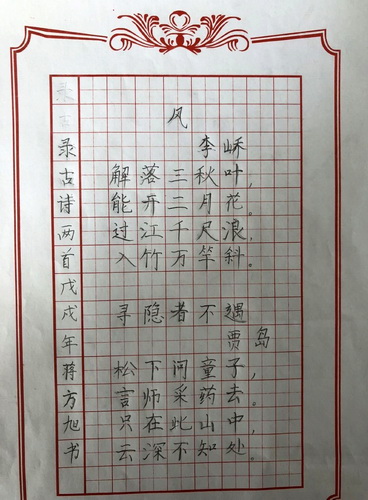 风
李峤
解落三秋叶,
能开二月花。
过江千尺浪,
入竹万竿斜。
寻隐者不遇
贾岛
松下问童子,
言师采药去。
只在此山中,
云深不知处。
录古诗两首戊戌年蒋方旭书